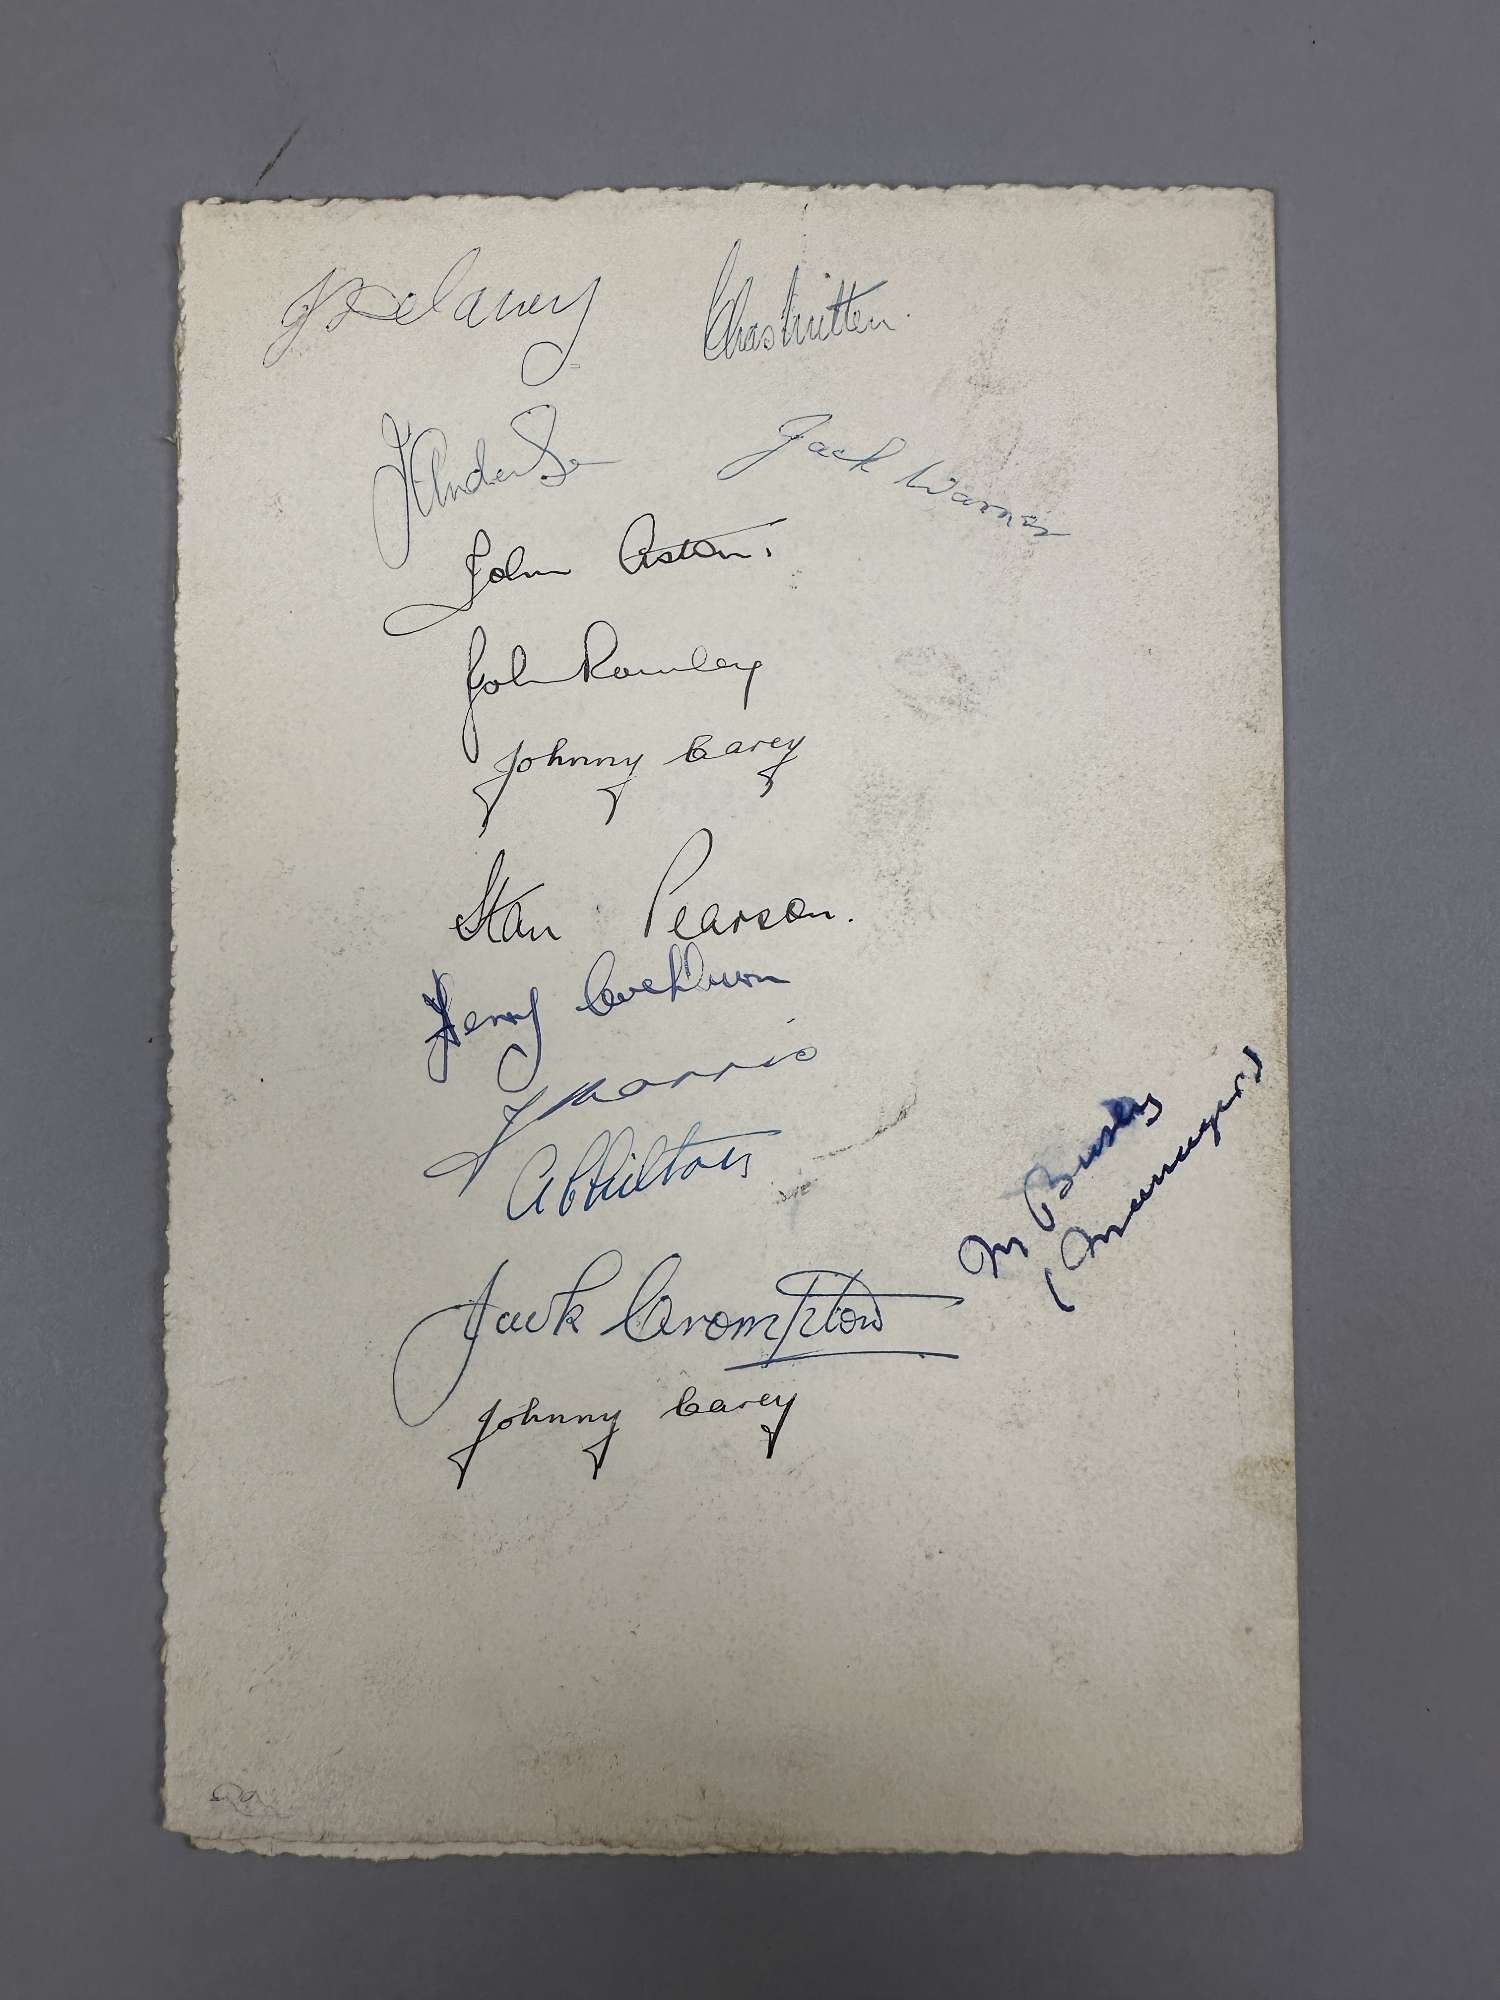 J Delaney Chas Mitten.
J Anderson Jack Warner
John Aston.
John Rowley
Johnny Carey
Stan Pearson.
Henry Cockburn
J Morris
A B Chilton
M Busby
(Manager)
Jack Crompton
Johnny Carey